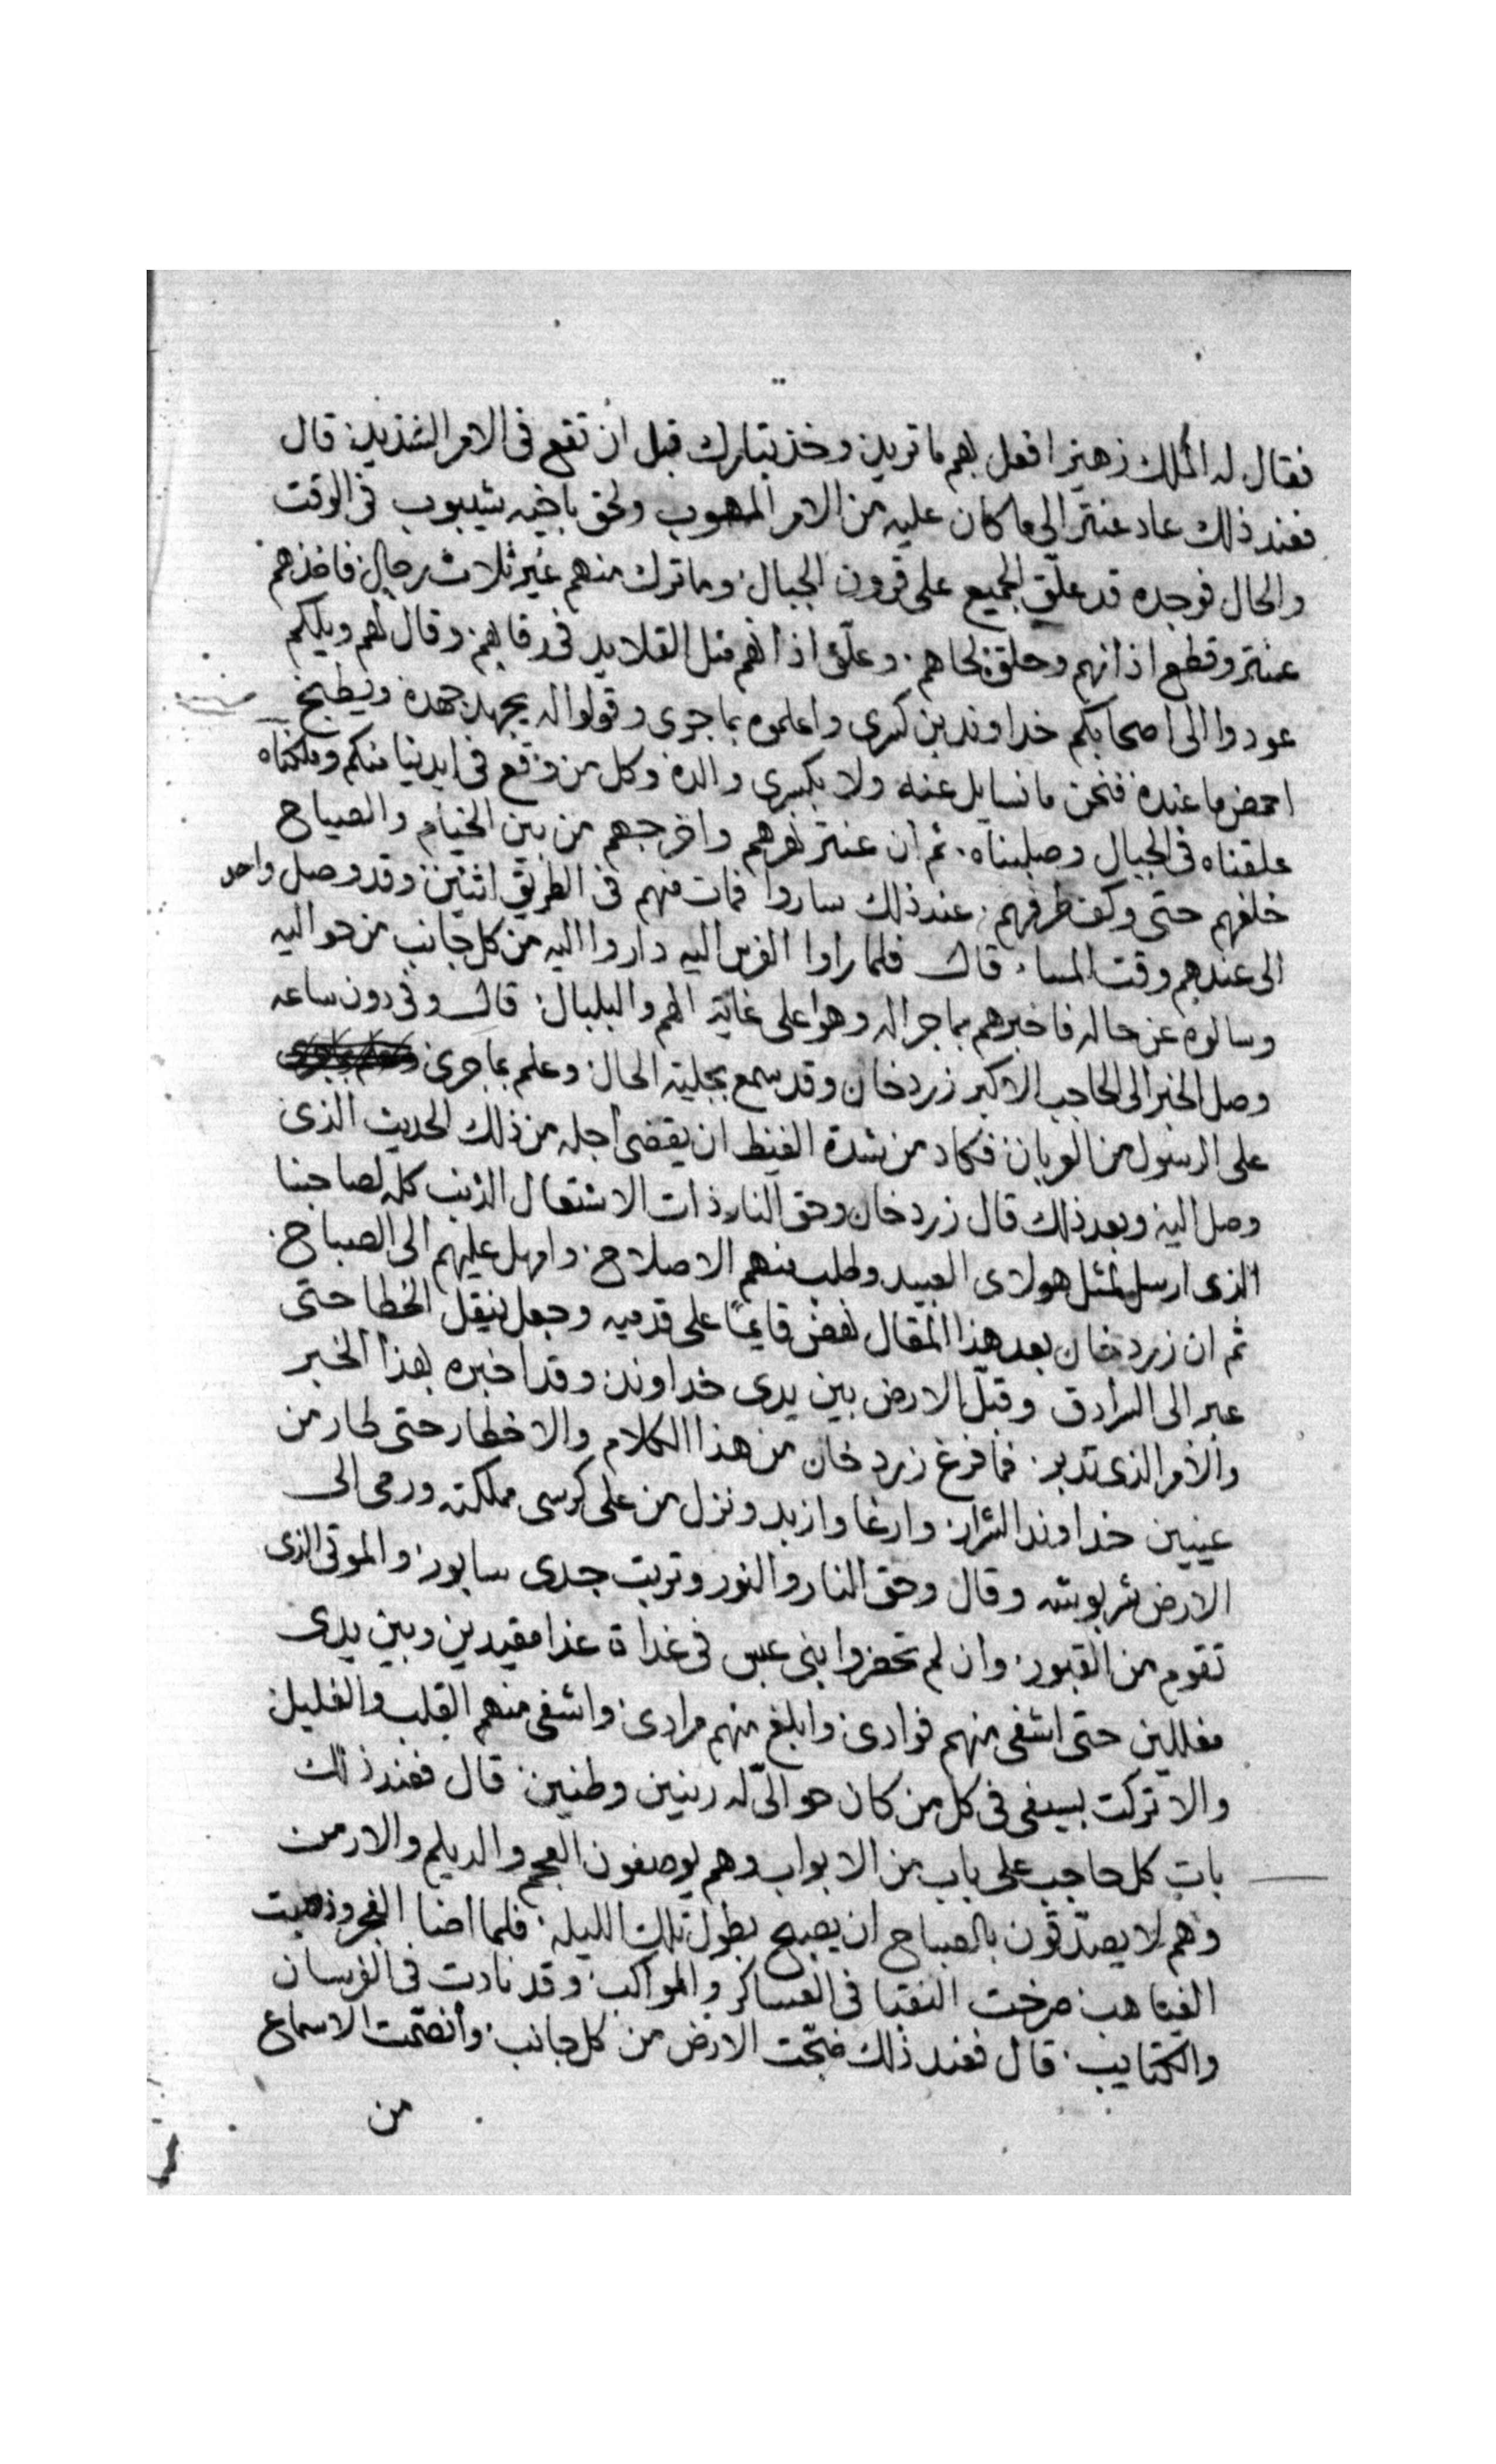 فقال له الملك زهير افعل بهم ما تريد وخذ بتارك قبل ان تقع في الامر الشديد قال
فعند ذلك عاد عنتر الي ما كان عليه من الامر المهوب ولحق باخيه شيبوب في الوقت
والحال فوجده قد علّق الجميع على قرون الجبال وما ترك منهم غير ثلاث رجال فاخذهم
عنتر وقطع اذانهم وحلق لحاهم وعلّق اذانهم مثل القلايد في رقابهم وقال لهم ويلكم
عودوا الى اصحابكم خداوند بن كسرى واعلموه بما جرى وقولوا له يجهد جهده ويطبخ
احمض ما عنده فنحن ما نسايل عنه ولا بكسرى والده وكل من وقع في ايدينا منكم وملكناه
علقناه في الجبال وصلبناه ثم ان عنتر نهرهم واخرجهم من بين الخيام والصياح
خلفهم حتى وكف طرفهم عند ذلك ساروا فمات منهم في الطريق اثنين وقد وصل واحد
الى عندهم وقت المساء قال فلما راوا الفرس اليه داروا اليه من كل جانب من حواليه
وسالوه عن حاله فاخبرهم بما جرا له وهوا على غاية الهم والبلبال قال وفي دون ساعه
وصل الخبر الى الحاجب الاكبر زردخان وقد سمع بجلية الحال وعلم بما جرى
على الرسول من العربان فكاد من شدة الغيظ ان يقضى اجله من ذلك الحديث الذى
وصل اليه وبعد ذلك قال زردخان وحق النار ذات الاشتعال الذنب كله لصاحبنا
الذى ارسل لمثل هولاى العبيد وطلب منهم الاصلاح وامهل عليهم الى الصباح
ثم ان زردخان بعد هذا المقال نهض قايمًا على قدميه وجعل ينقل الخطا حتى
عبر الى السرادق وقبّل الارض بين يدى خداوند وقد اخبره بهذا الخبر
والامر الذى تدبر فما فرغ زردخان من هذا الكلام والاخطار حتى طار من
عينين خداوند الشرار وارغا وازبد ونزل من على كرسى مملكته ورمى الى
الارض شربوشه وقال وحق النار والنور وتربت جدى سابور والموتى الذى
تقوم من القبور وان لم تحضروا بنى عبس في غداة غدا مقيدين وبين يدى
مغللين حتى اشفى منهم فوادى وابلغ منهم مرادى واشفى منهم القلب والغليل
والا تركت بسيفى في كل من كان حوالىّ له رنين وطنين قال فعند ذلك
بات كل حاجب على باب من الابواب وهم يوصفون العجم والديلم والارمن
وهم لا يصدّقون بالصباح ان يصبح بطول تلك الليله فلما اضا الفجر وذهبت
الغياهب صرخت النقبا في العساكر والمواكب وقد نادت في الفرسان
والكتايب قال فعند ذلك ضجّت الارض من كل جانب وأنصمّت الاسماع
من